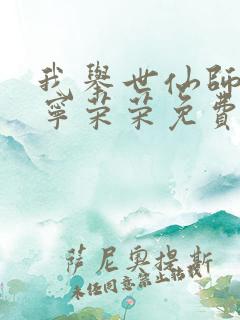 我举世仙師
寧荣荣免費
萨尼奥提斯
未经同意禁止转载